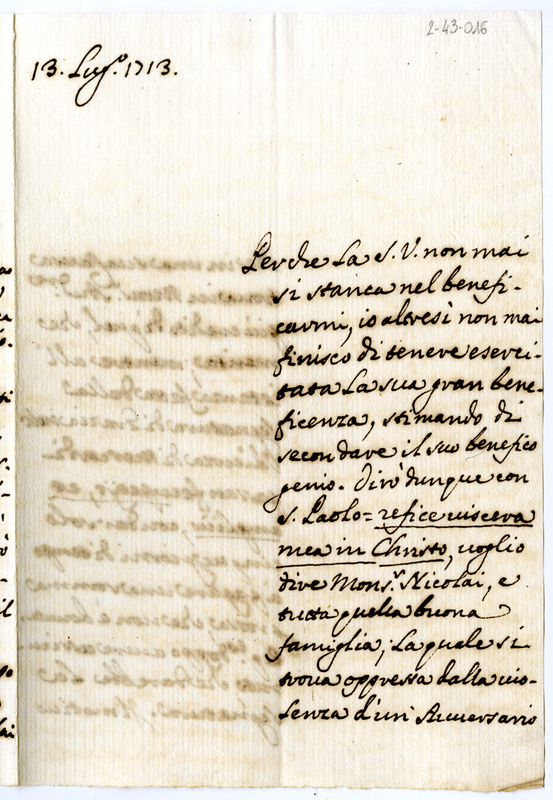 2-43-016
13. Lug.º 1713.
Perche La S. V. non mai
si stanca nel benefi-
carmi, io altresì non mai
finisco di tenere eserci-
tata La sua gran bene-
ficenza, stimando di
secondare il suo benefico
genio. Dirò dunque con
S. Paolo = refice viscera
mea in Christo, voglio
dire Mons.r Nicolai, e
tutta quella buona
famiglia, La quale si
trova oppressa dalla vio-
lenza d'un Avversario